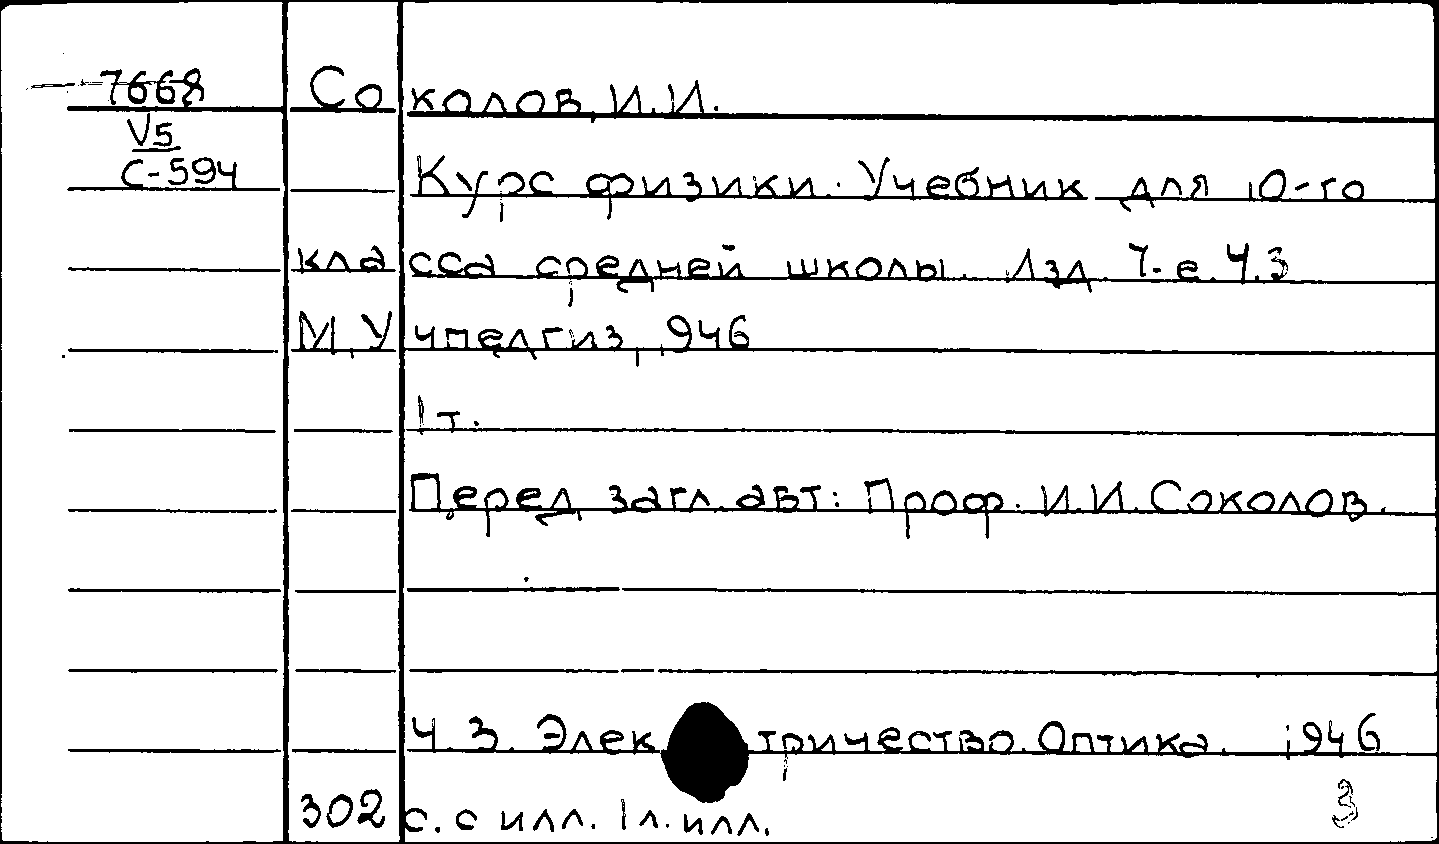 7668
V5
С-594
Соколов, И.И.
Курс физики. Учебник для 10-го
класса средней школы. Изд. 7-е. Ч.3
М., Учпедгиз, 1946
1 т.
Перед загл. авт: Проф. И.И. Соколов.
Ч. 3. Электричество. Оптика. 1946
302 с. с илл. 1 л. илл.
3